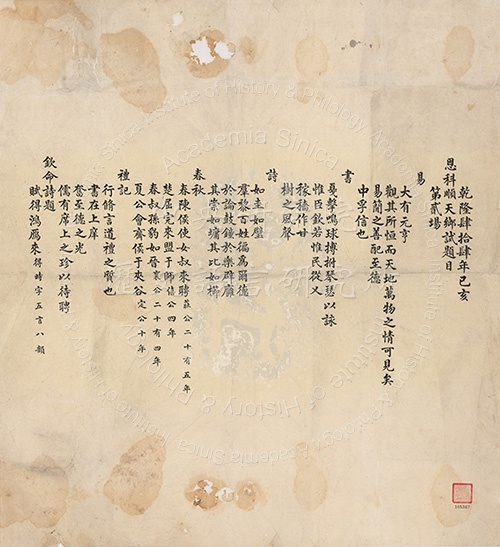 乾隆肆拾肆年己亥
恩科順天鄉試題目
第貳場
易
大有元亨
觀其所恒而天地萬物之情可見矣
易簡之善配至德
中孚信也
書
戛擊鳴球搏拊琴瑟以詠
惟臣欽若惟民從乂
稼穡作甘
樹之風聲
詩
如圭如璧
羣黎百姓徧為爾德
於論鼓鐘於樂辟廱
其崇如墉其比如櫛
春秋
春陳侯使女叔來聘莊公二十有五年
楚屈完來盟于師僖公四年
春叔孫豹如晉襄公二十有四年
夏公會齊侯于夾谷定公十年
禮記
行脩言道禮之質也
書在上庠
奮至德之光
儒有席上之珍以待聘
欽命詩題
賦得鴻鴈來得時字五言八韻
Institute of History & Philology, Academia Sinica